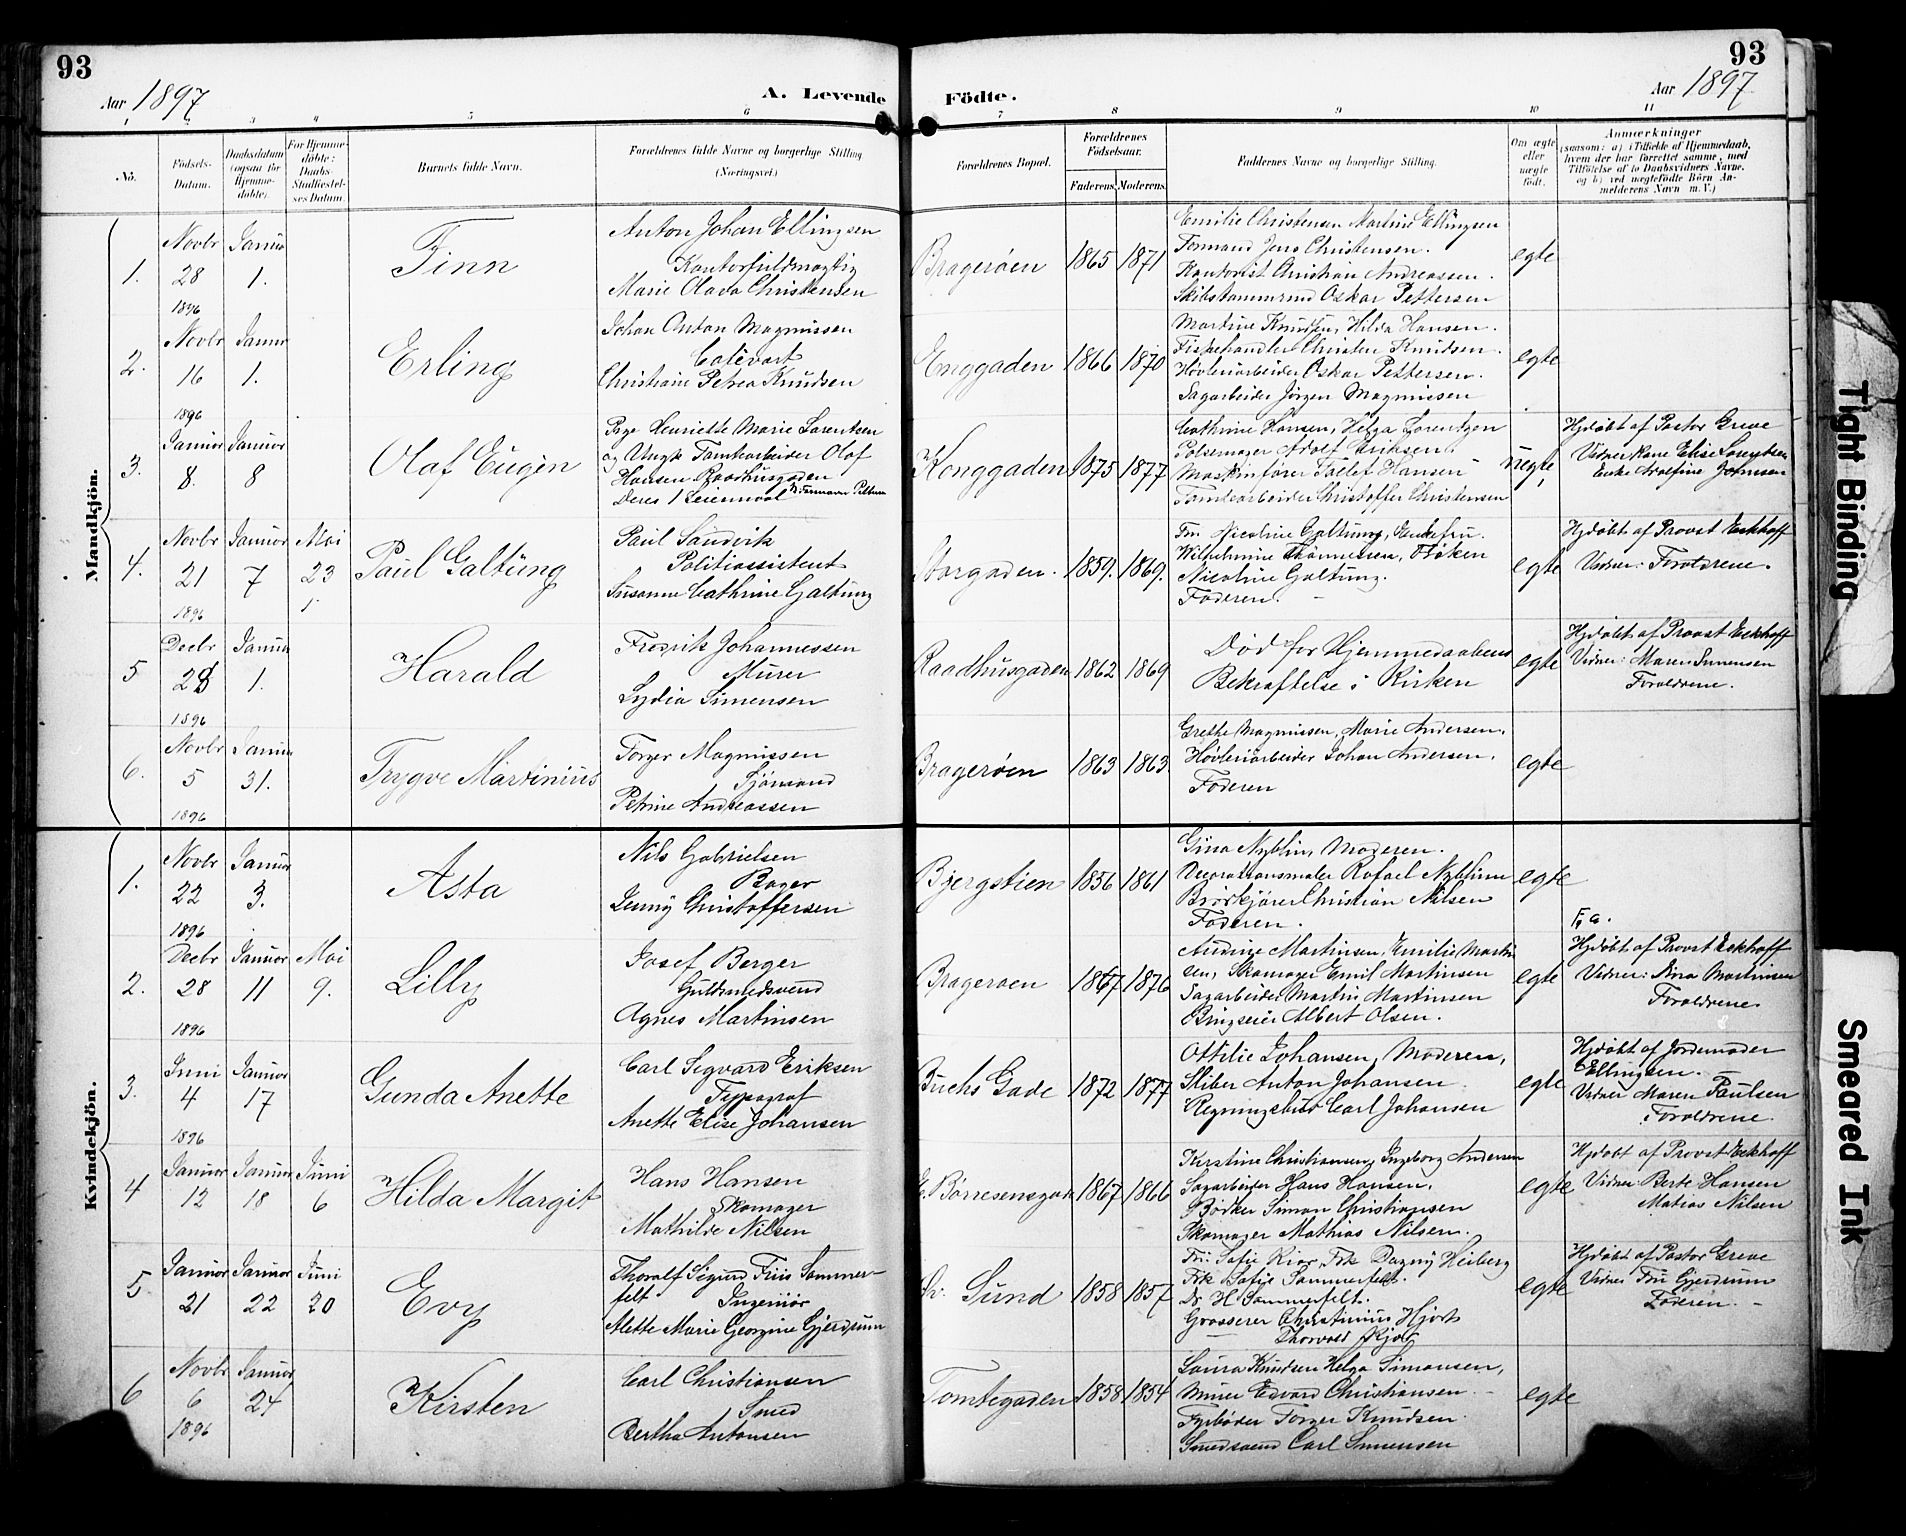 93
93
Aar 1897
A. Levende
Födte.
Aar 1897
1 3 4 5 6 7 8 9 10 11
No.
Födsels-Datum.
Daabsdatum (ogsaa for Hjemme-döbte).
For Hjemme-döbte: Daabs-Stadfæstel-ses Datum.
Barnets fulde Navn.
Forældrenes fulde Navne og borgerlige Stilling (Næringsvei.)
Forældrenes Bopæl.
Forældrenes Födselsaar.
Faderens. Moderens.
Faddernes Navne og borgerlige Stilling.
Om ægte eller uægte födt.
Anmærkninger
(saasom: a) i Tilfælde af Hjemmedaab,
hvem der har forrettet samme, med
Tilföielse af to Daabsvidners Navne.
og b) ved uægtefödte Börn An-
melderens Navn m. V.)
Mandkjön.
1. Novbr 28 1896
Januar 1.
Finn
Anton Johan Ellingsen
Kontorfuldmægtig
Marie Olava Christensen
Bragerøen
1865 1871
Emilie Christensen Martine Ellingsen
Formand Jens Christensen.
Kontorist Christian Andreassen.
Skibstømmermd Oskar Pettersen
egte
2. Novbr 16 1896
Januar 1.
Erling
Johan Anton Magnussen
Christiane Petrea Knudsen
Enggaden
1866 1870
Martine Knudsen, Hilda Hansen.
Fiskehandler Christen Knudsen.
Høvleriarbeider Oskar Pettersen.
Sagarbeider Jörgen Magnussen
egte
3. Januar 8.
Januar 8
Olaf Eugèn
Pige Henriette Marie Lorentsen
og Ungk Tomtearbeider Olaf
Hansen Raadhusgaden
Deres 1 Leiermaal
Konggaden
1875 1877
Cathrine Hansen, Helga Lorentzen
Pölsemager Adolf Eriksen.
Maskinfører Hansen
Tomtearbeider Christoffer Christensen
uegte,
Hjdøbt af Pastor Greve
Vidner Kone Elise Lorentsen
Enke Adolfine Johnsen
4. Novbr 21 1896
Januar 7
Mai 23
Paul Galtung
Paul Sandvik
Politiassistent
Susanne Cathrine Galtung
Storgaden.
1859. 1869.
Fru Nicoline Galtung, Enkefru.
Wilhelmine Thommesen, Frøken
Nicoline Galtung.
Faderen.
egte
Hjdøbt af Provst Eckhoff
Vidner: Forældrene.
5 Decbr 28 1896
Januar 1.
Harald
Fredrik Johannessen
Murer
Lydia Simensen
Raadhusgaden
1862 1869
Død før Hjemmedaabens
Bekræftelse i Kirken
egte
Hjdøbt af Provst Eckhoff
Vidner: Maren Simensen
Forældrene.
6. Novbr 5 1896
Januar 31.
Trygve Martinius
Torger Magnussen
Sjömand
Petrine Andreassen
Bragerøen
1863 1863.
Grethe Magnussen, Marie Andersen.
Høvleriarbeider Johan Andersen.
Faderen
egte
Kvindekjön.
1. Novbr 22 1896
Januar 3.
Asta
Nils Gabrielsen
Bager
Jenny Christoffersen
Bjergstien
1856 1861
Gina Nyblin, Moderen.
Decorationsmaler Rafael Nyblin
Brødkjörer Christian Nilsen
Faderen.
egte
2. Decbr 28 1896
Januar 11
Mai 9.
Lilly
Josef Berger
Guldsmedsvend
Agnes Martinsen
Bragerøen
1867 1876
Martinsen, Emilie Martin
sen, Skomager Emil Martinsen
Sagarbeider Martin Martinsen
Albert Olsen.
egte
Hjdøbt af Provst Eckhoff
Vidner: Martinsen
Forældrene.
3. Juni 4 1896
Januar 17
Gunda Anette
Carl Sigvard Eriksen
Typograf
Anette Elise Johansen
Buchs Gade
1872 1877
Ottilie Johansen, Moderen,
Sliber Anton Johansen
Regningsbud Carl Johansen
egte
Hjdøbt af Jordemoder
Ellingsen.
Vidner Maren Paulsen
Forældrene.
4 Januar 12
Januar 18
Juni 6
Hilda Margit
Hans Hansen
Skomager
Mathilde Nilsen
Børresensgade
1867 1866
Kirstine Christiansen, Ingeborg Andersen
Sagarbeider Hans Hansen.
Bödker Simon Christiansen
Skomager Mathias Nilsen.
egte
Hjdøbt af Provst Eckhoff
Vidner Berte Hansen
Matias Nilsen
5 Januar 21
Januar 22
Juni 20
Evy
Thoralf Sigurd Friis Sommer-
felt Ingeniör
Alette Marie Georgine Gjerdrum
Sund
1858 1857
Fru Sofie Kiær, Frk Dagny Heiberg
Frk Sofie Sommerfelt.
Dr H Sommerfelt.
Grosserer Christinius Hjort
Thorvald Kjær
egte
Hjdøbt af Pastor Greve
Vidner Fru Gjerdrum
Faderen.
6 Novbr 6 1896
Januar 24
Kirsten
Carl Christiansen
Smed
Bertha Antonsen
Tomtegaden
1858 1854
Laura Knudsen Helga Simonsen,
Murer Edvard Christiansen
Fyrbøder Torger Knudsen.
Smedsvend Carl Simensen
egte
Tight Binding
Smeared Ink